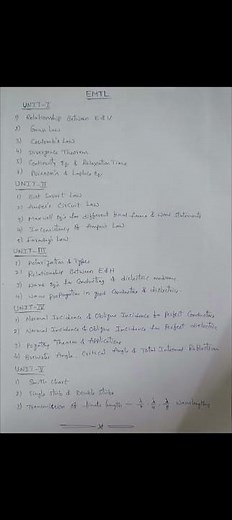 EMTL
UNIT-I
1) Relationship Between E & V
2) Gauss Law
3) Coulomb's Law
4) Divergence Theorem
5) Continuity Eq & Relaxation Time
6) Poisson's & Laplace Eq
UNIT-II
1) Biot Savart Law
2) Ampere's Circuit Law
3) Maxwell Eq's for different final forms & word statements
4) Inconsistency of Ampere's Law
5) Faraday's Law
UNIT-III
1) Polarization & Types
2) Relationship Between E & H
3) Wave Eq's for Conducting & dielectric mediums
4) wave Propagation in good Conductors & dielectrics
UNIT-IV
1) Normal Incidence & Oblique Incidence for Perfect Conductors
2) Normal Incidence & Oblique Incidence for Perfect dielectrics
3) Poynting Theorem & Applications
4) Brewster Angle, Critical Angle & Total Internal Reflection
UNIT-V
1) Smith Chart
2) Single Stub & Double Stubs
3) Transmission of length - λ/2, λ/4, λ/8 wavelengths